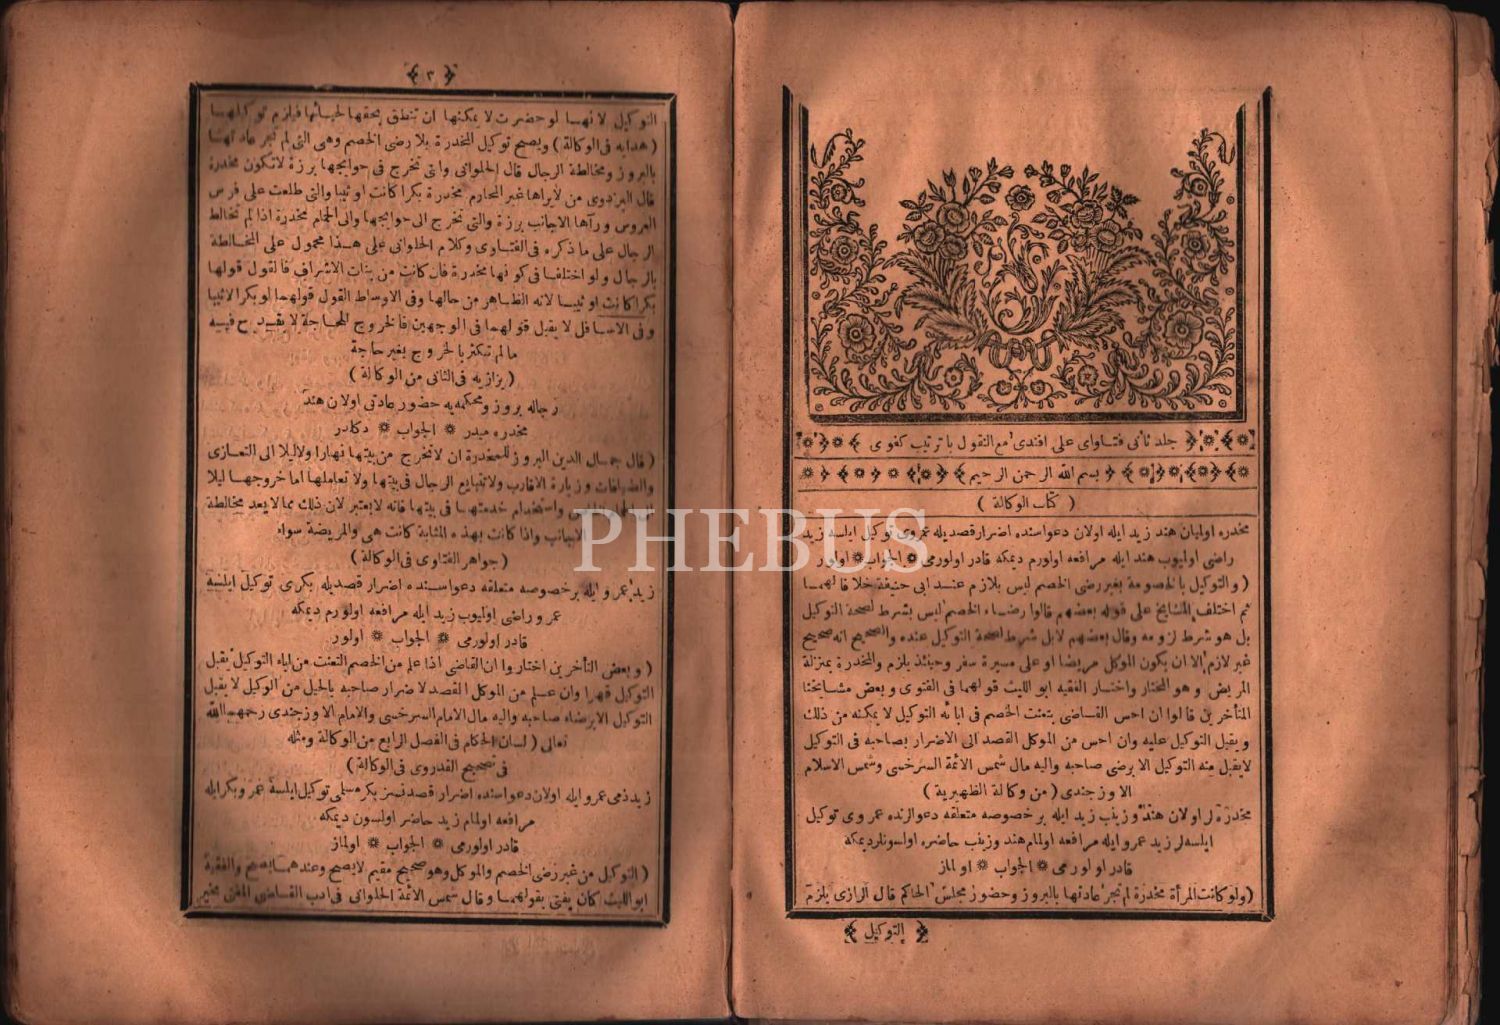 جلد ثانى فتاواى على افندى مع النقول با ترتيب كفوى
بسم الله الرحمن الرحيم
( كتاب الوكالة )
مخدره اوليان هند زيد ايله اولان دعواسنده اضرار قصديله عمروى توكيل ايلسه زيد
راضى اوليوب هند ايله مرافعه اولورم ديمكه قادر اولورمى الجواب اولور
( والتوكيل بالخصومة بغير رضى الخصم ليس بلازم عند ابى حنيفة خلافا لهما
ثم اختلف المشايخ على قوله بعضهم قالوا رضاء الخصم ليس بشرط لصحة التوكيل
بل هو شرط لزومه وقال بعضهم لا بل شرط لصحة التوكيل عنده والصحيح انه صحيح
غير لازم الا ان يكون الموكل مريضا او على مسيرة سفر وحينئذ يلزم والمخدرة بمنزلة
المريض وهو المختار واختار الفقيه ابو الليث قولهما فى الفتوى وبعض مشايخنا
المتأخرين قالوا ان احس القاضى بتعنت الخصم فى ابائه التوكيل لا يمكنه من ذلك
ويقبل التوكيل عليه وان احس من الموكل القصد الى الاضرار بصاحبه فى التوكيل
لا يقبل منه التوكيل الا برضى صاحبه واليه مال شمس الائمة السرخسى وشمس الاسلام
الاوزجندى ( من وكالة الظهيرية )
مخدره لر اولان هند وزينب زيد ايله بر خصوصه متعلقه دعوالرنده عمروى توكيل
ايلسه لر زيد عمرو ايله مرافعه اولمام هند وزينب حاضره اولسونلر ديمكه
قادر اولورمى الجواب اولماز
( ولو كانت المرأة مخدرة لم تجر عادتها بالبروز وحضور مجلس الحاكم قال الرازى يلزم
التوكيل
٣
التوكيل لانها لو حضرت لا يمكنها ان تنطق بحقها لحيائها فيلزم توكيلها
( هدايه فى الوكالة ) ويصح توكيل المخدرة بلا رضى الخصم وهى التى لم تجر عادتها
بالبروز ومخالطة الرجال قال الحلوانى والتى تخرج فى حوايجها برزة لا تكون مخدرة
قال البزدوى من لا يراها غير المحارم مخدرة بكرا كانت او ثيبا والتى طلعت على فرس
العروس ورآها الاجانب برزة والتى تخرج الى حوايجها والى الحمام مخدرة اذا لم تخالط
الرجال على ما ذكره فى الفتاوى وكلام الحلوانى على هذا محمول على المخالطة
بالرجال ولو اختلفا فى كونها مخدرة فان كانت من بنات الاشراف فالقول قولها
بكرا كانت او ثيبا لانه الظاهر من حالها وفى الاوساط القول قولهما لو بكرا لا ثيبا
وفى الاسافل لا يقبل قولهما فى الوجهين فالخروج للحاجة لا يقدح فيه
ما لم تكثر بالخروج بغير حاجة
( بزازيه فى الثانى من الوكالة )
رجاله بروز ومحكمه يه حضور عادتى اولان هند
مخدره ميدر الجواب دكلدر
( قال جمال الدين البروز للمخدرة ان لا تخرج من بيتها نهارا ولا ليلا الى التعازى
والضيافات وزيارة الاقارب ولا تبايع الرجال فى بيتها ولا تعاملها اما خروجها ليلا
واستخدام خدمتها فى بيتها فانه لا يعتبر لان ذلك مما لا يعد مخالطة
واذا كانت بهذه المثابة كانت هى والمريضة سواء
( جواهر الفتاوى فى الوكالة )
زيد عمرو ايله بر خصوصه متعلقه دعواسنده اضرار قصديله بكرى توكيل ايلسه
عمرو راضى اوليوب زيد ايله مرافعه اولورم ديمكه
قادر اولورمى الجواب اولور
( وبعض المتأخرين اختاروا ان القاضى اذا علم من الخصم التعنت من اباء التوكيل يقبل
التوكيل قهرا وان علم من الموكل القصد لاضرار صاحبه بالحيل من الوكيل لا يقبل
التوكيل الا برضاء صاحبه واليه مال الامام السرخسى والامام الاوزجندى رحمهما الله
تعالى ( لسان الحكام فى الفصل الرابع من الوكالة ومثله
فى تصحيح القدورى فى الوكالة )
زيد ذمى عمرو ايله اولان دعواسنده اضرار قصد سز بكر مسلمى توكيل ايلسه عمرو بكر ايله
مرافعه اولمام زيد حاضر اولسون ديمكه
قادر اولورمى الجواب اولماز
( التوكيل من غير رضى الخصم والموكل وهو صحيح مقيم لا يصح وعندهما يصح والفقيه
ابو الليث كان يفتى بقولهما وقال شمس الائمة الحلوانى فى ادب القاضى المفتى مخير
PHEBUS